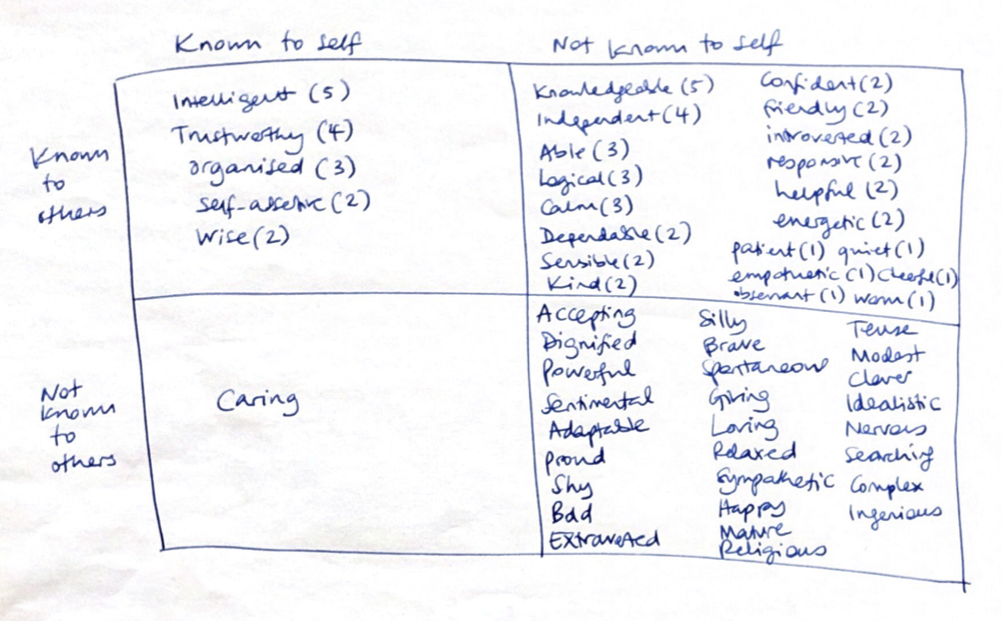 Known to self
Not known to self
Known
to
others
Intelligent (5)
Trustworthy (4)
organised (3)
self-assertive (2)
Wise (2)
Knowledgeable (5)
Independent (4)
Able (3)
Logical (3)
Calm (3)
Dependable (2)
Sensible (2)
Kind (2)
Confident (2)
friendly (2)
introverted (2)
responsive (2)
helpful (2)
energetic (2)
patient (1) quiet (1)
empathetic (1) cheerful (1)
observant (1) warm (1)
Not
known
to
others
Caring
Accepting
Dignified
Powerful
Sentimental
Adaptable
proud
Shy
Bold
Extraverted
Silly
Brave
Spontaneous
Giving
Loving
Relaxed
Sympathetic
Happy
Mature
Religious
Tense
Modest
Clever
Idealistic
Nervous
Searching
Complex
Ingenious